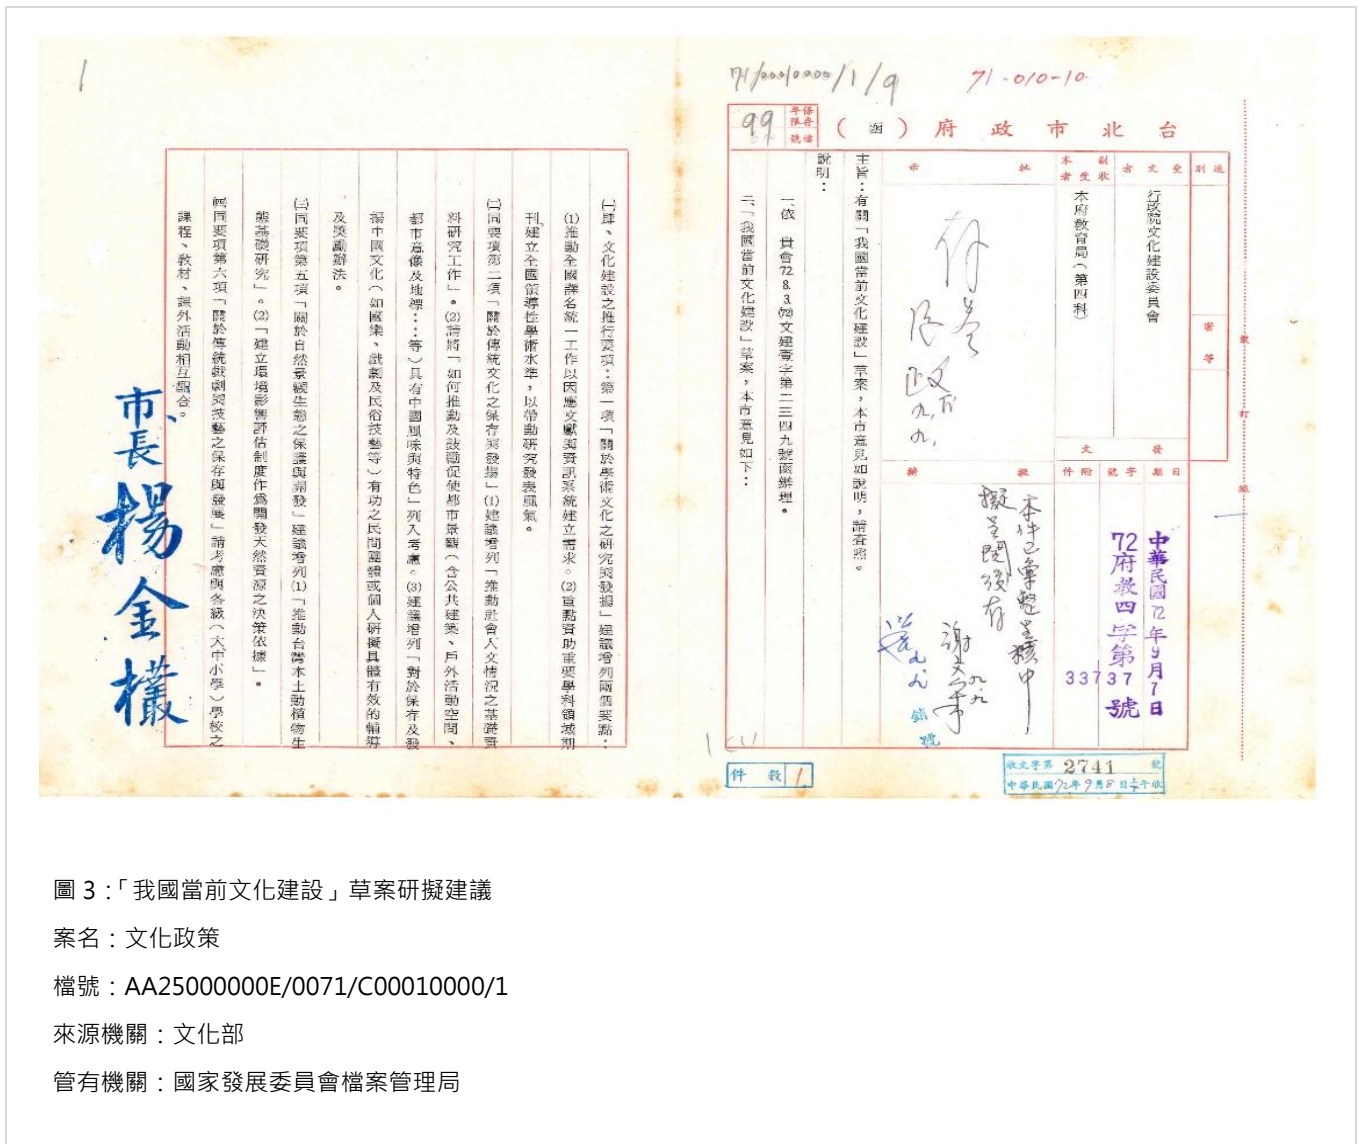 71-010-10
99
保存年限
檔號
台北市政府（函）
速別
受文者
行政院文化建設委員會
副本收受者
本府教育局（第四科）
密等
批示
存卷
發文
日期
字號
附件
中華民國72年9月7日
72府教四字第33737號
擬辦
本件已彙整呈核中
擬呈閱後存
主旨：有關「我國當前文化建設」草案，本市意見如說明，請查照。
說明：
一、依　貴會72.8.3.(72)文建壹字第二三四九號函辦理。
二、「我國當前文化建設」草案，本市意見如下：
裝訂線
件數 1
收文字第2741號
中華民國72年9月8日上午收
1
(一)肆、文化建設之推行要項：第一項「關於學術文化之研究與發揚」建議增列兩個要點：
(1)推動全國譯名統一工作以因應文獻與資訊系統建立需求。(2)重點資助重要學科領域期
刊建立全國領導性學術水準，以帶動研究發表風氣。
(二)同要項第二項「關於傳統文化之保存與發揚」(1)建議增列「推動社會人文情況之基礎資
料研究工作」。(2)請將「如何推動及鼓勵促使都市景觀（含公共建築、戶外活動空間、
都市意像及地標⋯⋯等）具有中國風味與特色」列入考慮。(3)建議增列「對於保存及發
揚中國文化（如國樂、戲劇及民俗技藝等）有功之民間團體或個人研擬具體有效的輔導
及獎勵辦法。
(三)同要項第五項「關於自然景觀生態之保護與開發」建議增列(1)「推動台灣本土動植物生
態基礎研究」。(2)「建立環境影響評估制度作為開發天然資源之決策依據」。
(四)同要項第六項「關於傳統戲劇與技藝之保存與發展」請考慮與各級（大中小學）學校之
課程、教材、課外活動相互融合。
市長楊金欉
圖 3：「我國當前文化建設」草案研擬建議
案名：文化政策
檔號：AA25000000E/0071/C00010000/1
來源機關：文化部
管有機關：國家發展委員會檔案管理局